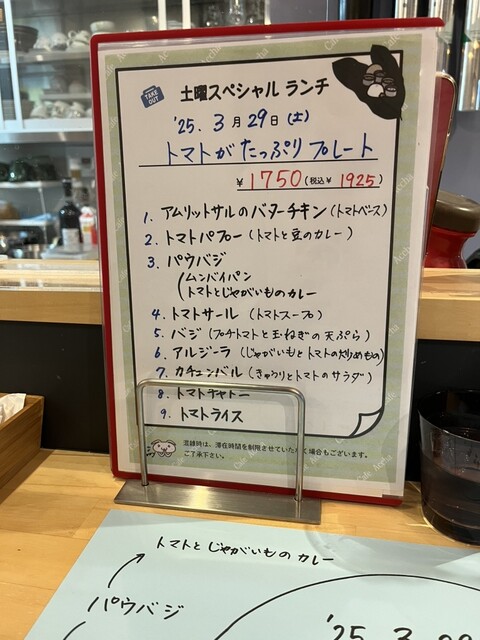 TAKE OUT
土曜スペシャル ランチ
'25. 3月29日(土)
トマトがたっぷりプレート
¥1750(税込¥1925)
1. アムリットサルのバターチキン(トマトベース)
2. トマトパプー(トマトと豆のカレー)
3. パウバジ
(ムンバイパン
トマトとじゃがいものカレー
4. トマトサール(トマトスープ)
5. バジ(プチトマトと玉ねぎの天ぷら)
6. アルジーラ(じゃがいもとトマトの炒めもの)
7. カチュンバル(きゅうりとトマトのサラダ)
8. トマトチャトニー
9. トマトライス
混雑時は、滞在時間を制限させていただく場合もございます。
ご了承下さい。
トマトとじゃがいものカレー
パウバジ
'25. 3.